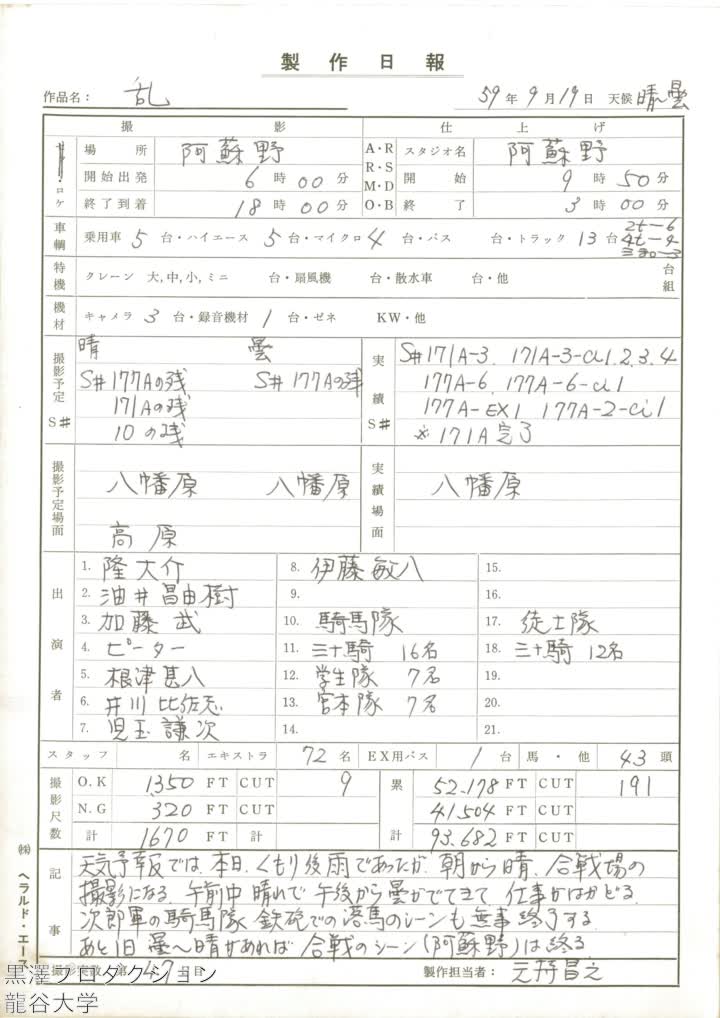 製作日報
作品名： 乱 59年9月19日 天候 晴〜曇
撮影 仕上げ
ロケ 場所 阿蘇野 A・R R・S M・D O・B スタジオ名 阿蘇野
開始出発 6時00分 開始 9時50分
終了到着 18時00分 終了 3時00分
車輌 乗用車 5台・ハイエース 5台・マイクロ 4台・バス 台・トラック 13台 2t－6 4t－4
特機 クレーン 大,中,小,ミニ 台・扇風機 台・散水車 台・他 台組
機材 キャメラ 3台・録音機材 1台・ゼネ KW・他
撮影予定 S# 晴 曇
S#177Aの残 S#177Aの残
171Aの残
10の残
実績 S# S#171A-3. 171A-3-ci1.2.3.4
177A-6. 177A-6-ci1
177A-EX1 177A-2-ci1
※171A完了
撮影予定場面 八幡原 八幡原
高原
実績場面 八幡原
出演者
1. 隆大介 8. 伊藤敏八 15.
2. 油井昌由樹 9. 16.
3. 加藤武 10. 騎馬隊 17. 徒士隊
4. ピーター 11. 三十騎 16名 18. 三十騎 12名
5. 根津甚八 12. 学生隊 7名 19.
6. 井川比佐志 13. 宮本隊 7名 20.
7. 児玉謙次 14. 21.
スタッフ 名 エキストラ 72名 EX用バス 1台 馬・他 43頭
撮影尺数 O.K 1350 FT CUT 9 累計 52.178 FT CUT 191
N.G 320 FT 41.504 FT
計 1670 FT 計 93.682 FT
記事 天気予報では、本日、くもり後雨であったが、朝から晴、合戦場の
撮影になる。午前中晴れで午後から曇がでてきて、仕事がはかどる。
次郎軍の騎馬隊、鉄砲での落馬のシーンも無事終了する。
あと1日 曇〜晴があれば、合戦のシーン（阿蘇野）は終る
撮影実数 第47日目 製作担当者： 元持昌之
㈱ ヘラルド・エース
黒澤プロダクション
龍谷大学